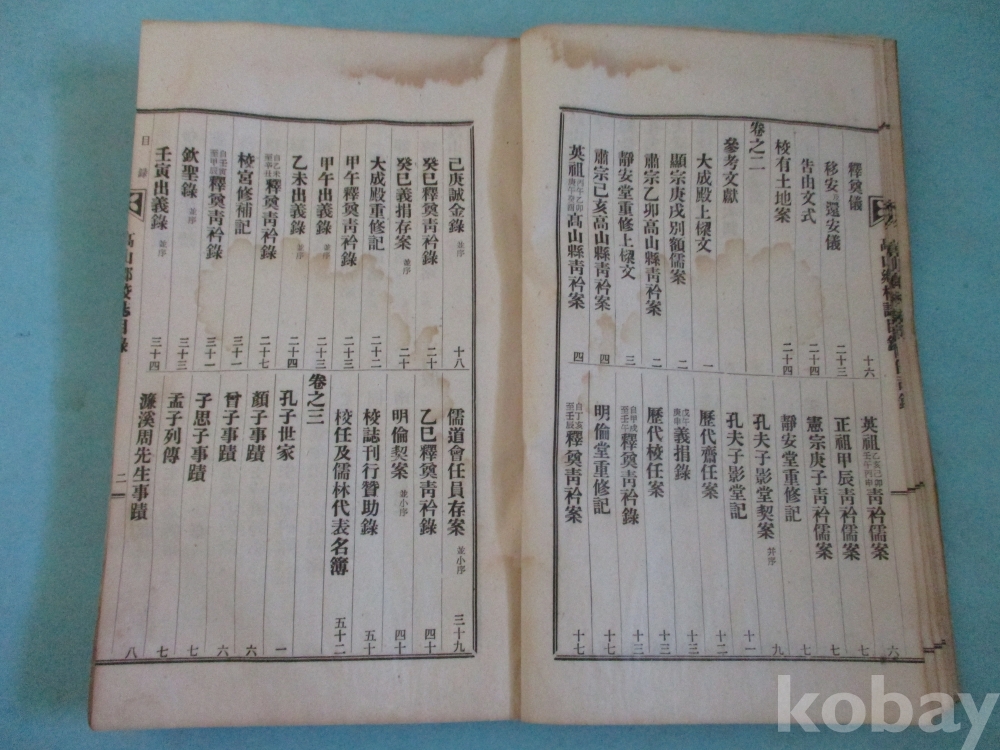 釋奠儀 十六
移安還安儀 二十三
告由文式 二十四
校有土地案 二十四
卷之二
參考文獻
大成殿上樑文 一
顯宗庚戌別額儒案 二
肅宗乙卯高山縣靑衿案 二
靜安堂重修上樑文 三
肅宗己亥高山縣靑衿案 四
英祖丙午乙卯 高山縣靑衿案 四
英祖乙亥己卯壬午丙申靑衿儒案 六
正祖甲辰靑衿儒案 七
憲宗庚子靑衿儒案 七
靜安堂重修記
孔夫子影堂契案 并序 九
孔夫子影堂記 十一
歷代齋任案 十二
戊午庚申義捐錄 十三
歷代校任案 十二
自甲戌至壬午釋奠靑衿錄 十三
明倫堂重修記 十七
自丁亥至壬辰釋奠靑衿案 十七
己庚誠金錄 並序 十八
癸巳釋奠靑衿錄 二十
癸巳義捐存案 並序 二十
大成殿重修記 二十二
甲午釋奠靑衿錄 二十三
甲午出義錄 並序 二十三
乙未出義錄 並序 二十四
自乙未至辛丑釋奠靑衿錄 二十七
校宮修補記 三十一
自壬寅至甲辰釋奠靑衿錄 三十一
欽聖錄 並序 三十三
壬寅出義錄 並序 三十四
儒道會任員存案 並小序 三十九
乙巳釋奠靑衿錄 四十
明倫契案 並小序 四十
校誌刊行贊助錄 五十
校任及儒林代表名簿 五十二
卷之三
孔子世家 一
顏子事蹟 六
曾子事蹟 六
子思子事蹟 七
孟子列傳 七
濂溪周先生事蹟 八
目錄
高山鄕校誌目錄
二
kobay